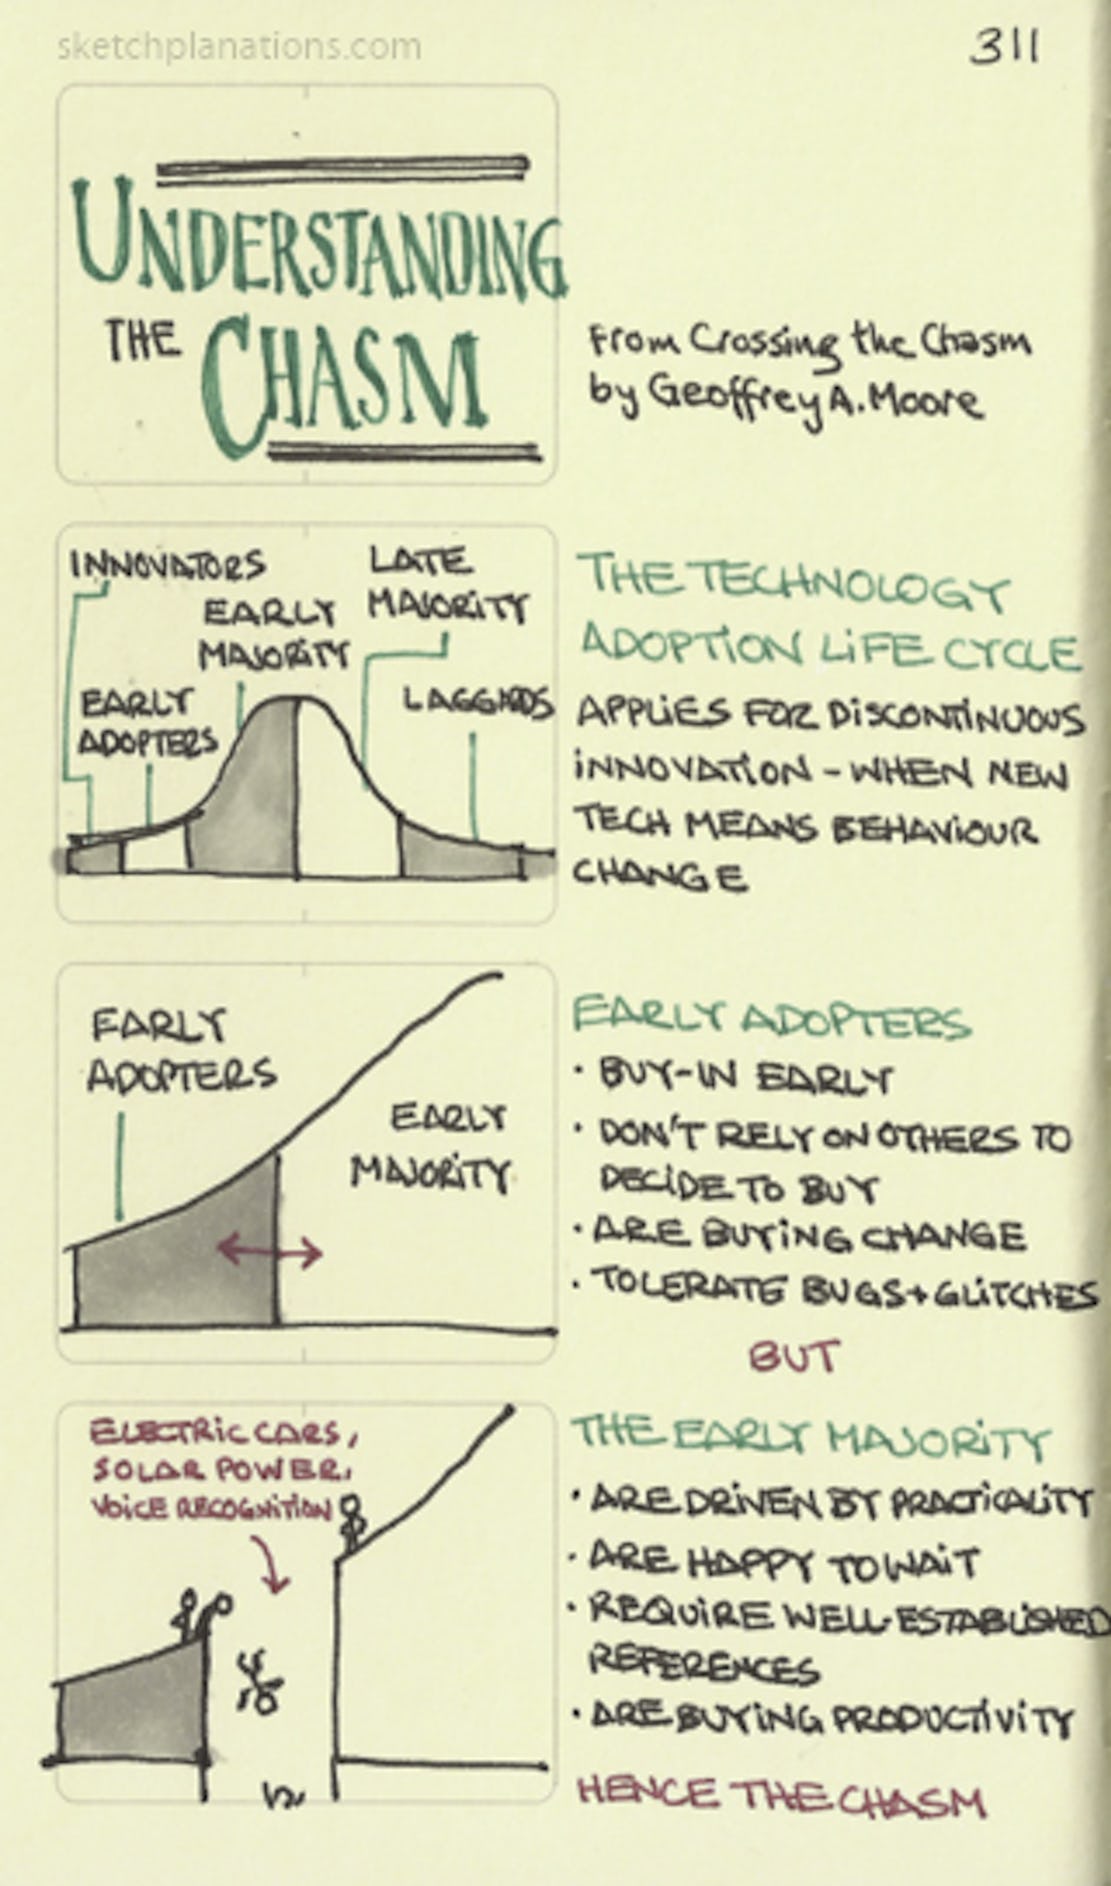 sketchplanations.com
311
UNDERSTANDING
THE CHASM
From Crossing the Chasm
by Geoffrey A. Moore
INNOVATORS
LATE
MAJORITY
EARLY
MAJORITY
EARLY
ADOPTERS
LAGGARDS
THE TECHNOLOGY
ADOPTION LIFE CYCLE
APPLIES FOR DISCONTINUOUS
INNOVATION - WHEN NEW
TECH MEANS BEHAVIOUR
CHANGE
EARLY
ADOPTERS
EARLY
MAJORITY
EARLY ADOPTERS
· BUY-IN EARLY
· DON'T RELY ON OTHERS TO
DECIDE TO BUY
· ARE BUYING CHANGE
· TOLERATE BUGS + GLITCHES
BUT
ELECTRIC CARS,
SOLAR POWER,
VOICE RECOGNITION
THE EARLY MAJORITY
· ARE DRIVEN BY PRACTICALITY
· ARE HAPPY TO WAIT
· REQUIRE WELL-ESTABLISHED
REFERENCES
· ARE BUYING PRODUCTIVITY
HENCE THE CHASM